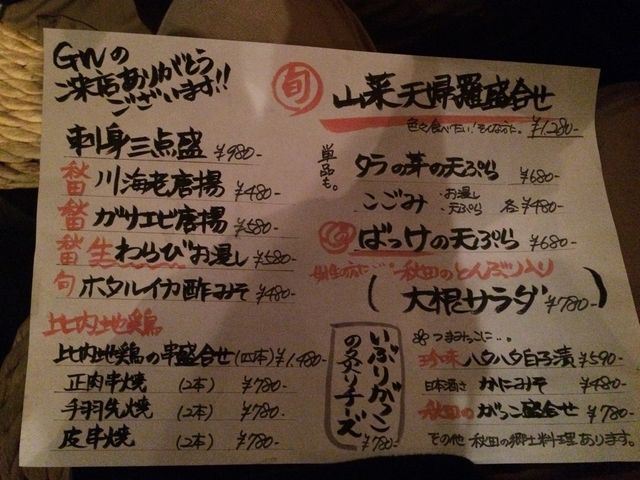 GWの
ご来店ありがとう
ございます!!
刺身三点盛 ¥980-
秋田 川海老唐揚 ¥480-
秋田 ガサエビ唐揚 ¥580-
秋田 生わらびお浸し ¥580-
旬 ホタルイカ酢みそ ¥480-
比内地鶏
比内地鶏の串盛合せ(四本) ¥1,480-
正肉串焼 (2本) ¥780-
手羽先焼 (2本) ¥780-
皮串焼 (2本) ¥780-
旬 山菜天婦羅盛合せ
色々食べたい!そんな方に。 ¥1,280-
単品も。
タラの芽の天ぷら ¥680-
こごみ ・お浸し ・天ぷら 各¥480-
ばっけの天ぷら ¥680-
女性の方に… 秋田のとんぶり入り
(大根サラダ ¥780-)
いぶりがっこ
の炙りチーズ
¥780-
つまみっこに…。
珍味 ハタハタ白子漬 ¥590-
日本酒と かにみそ ¥480-
秋田の がっこ盛合せ ¥780-
その他 秋田の郷土料理あります。